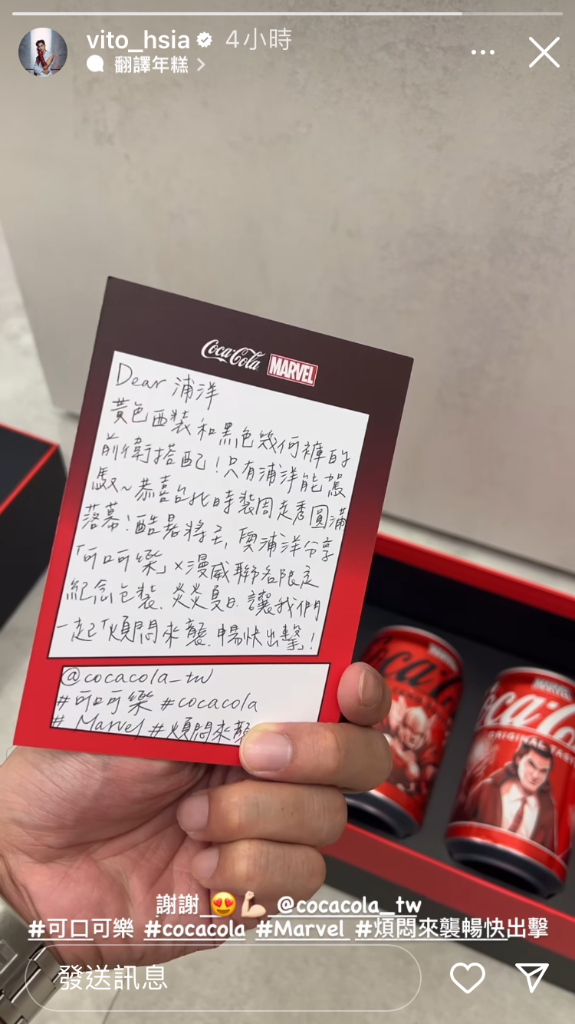 vito_hsia 4小時
翻譯年糕 >
Coca-Cola MARVEL
Dear 浦洋
黃色西裝和黑色幾何褲的
前衛搭配！只有浦洋能駕
馭~恭喜台北時裝周走秀圓滿
落幕！酷暑將至，與浦洋分享
「可口可樂」×漫威聯名限定
紀念包裝.炎炎夏日.讓我們
一起「煩悶來襲.暢快出擊」!
@cocacola_tw
#可口可樂 #cocacola
# Marvel #煩悶來襲
Coca-Cola
ORIGINAL TASTE
謝謝 😍💪🏻 @cocacola_tw
#可口可樂 #cocacola #Marvel #煩悶來襲暢快出擊
發送訊息